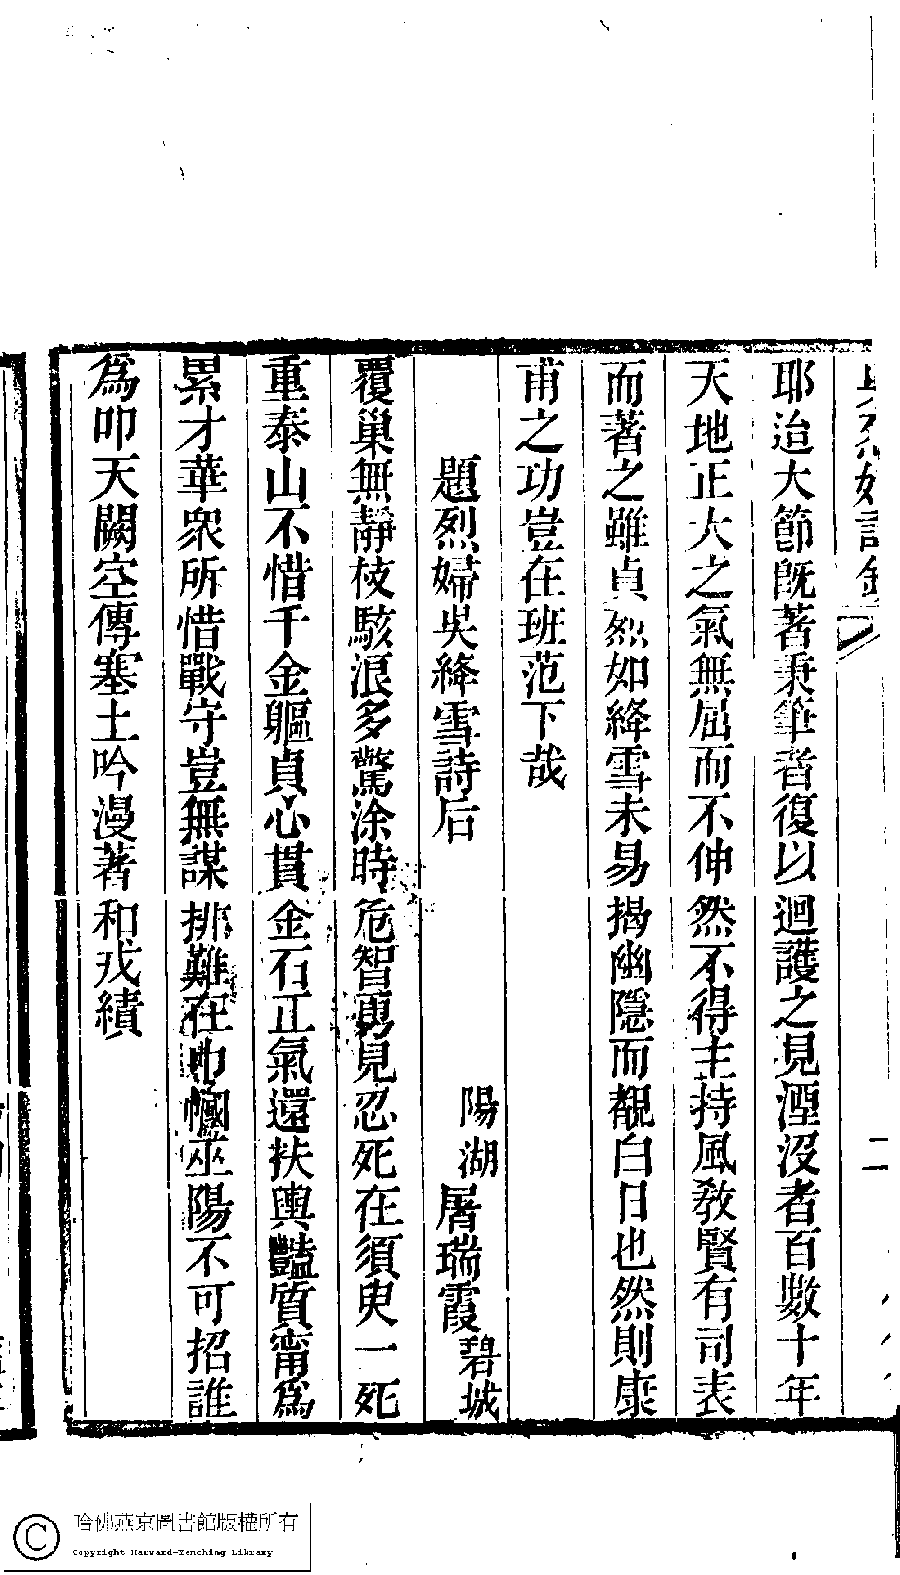 耶迨大節旣著秉筆者復以迴護之見湮沒者百數十年
天地正大之氣無屈而不伸然不得主持風敎賢有司表
而著之雖貞烈如絳雪未易揭幽隱而覩白日也然則康
甫之功豈在班范下哉
題烈婦吳絳雪詩后
陽湖屠瑞霞碧城
覆巢無靜枝駭浪多驚涂時危智勇見忍死在須臾一死
重泰山不惜千金軀貞心貫金石正氣還扶輿豔質甯爲
累才華衆所惜戰守豈無謀排難在巾幗巫陽不可招誰
爲叩天闕空傳塞土吟漫著和戎績
哈佛燕京圖書館版權所有
Copyright Harvard-Yenching Library